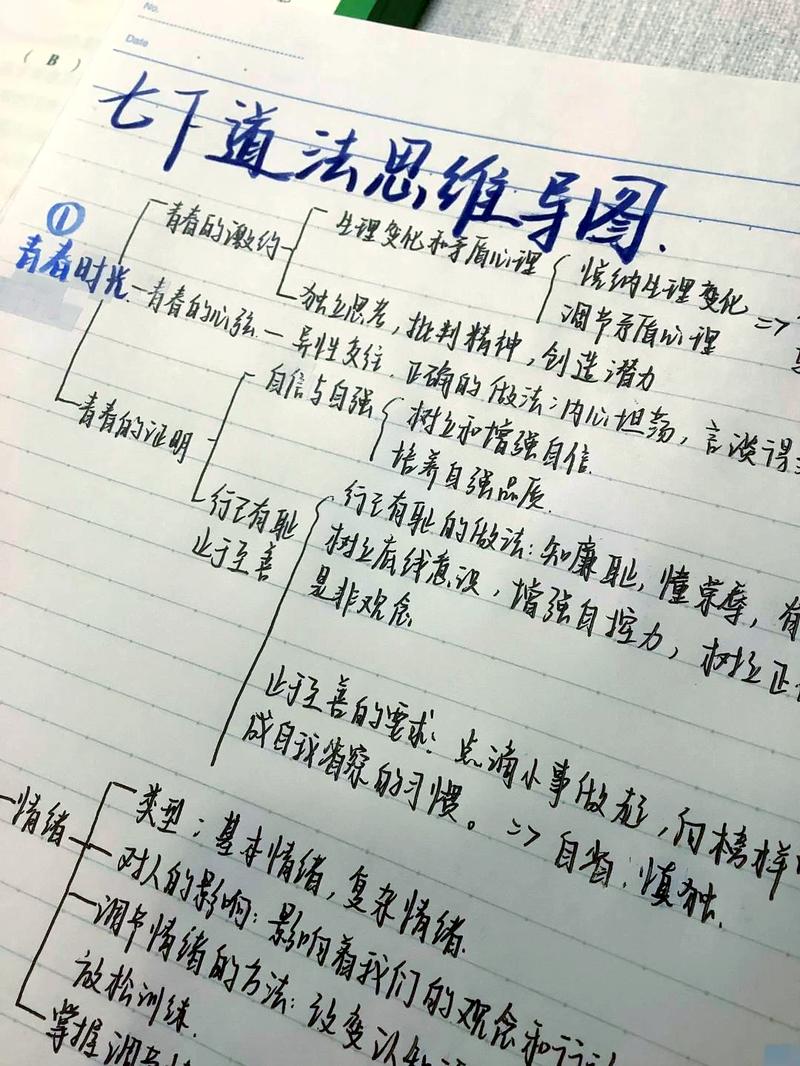 No.
Date
( B )
七下道法思维导图.
①
青春时光
青春的邀约
生理变化和矛盾心理
悦纳生理变化
调节矛盾心理
=>
独立思考，批判精神，创造潜力
青春的心弦
异性交往. 正确的做法:内心坦荡，言谈得
青春的证明
自信与自强
树立和增强自信.
培养自强品质.
行己有耻
止于至善
行己有耻的做法:知廉耻,懂荣辱,有
树立底线意识,增强自控力,树立正
是非观念
止于至善的要求:点滴小事做起,向榜样
成自我省察的习惯。=>自省.慎独.
情绪
类型:基本情绪,复杂情绪.
对人的影响:影响着我们的观念和行
调节情绪的方法:改变认知
放松训练.
掌握调节